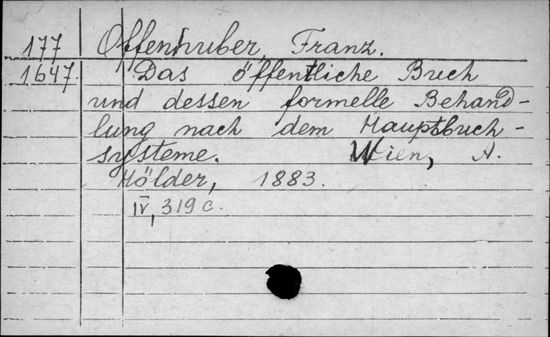 177 Offenhuber, Franz.
1647. Das öffentliche Buch
und dessen formelle Behand-
lung nach dem Hauptbuch-
systeme. Wien, A.
Hölder, 1883.
IV, 319 c.